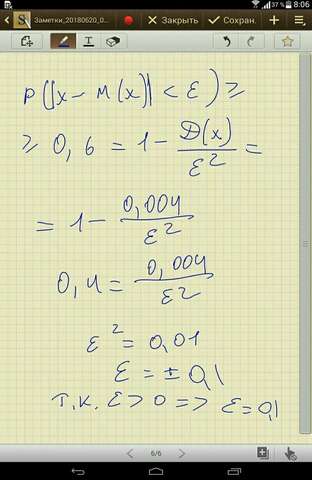 37 % 8:06
Заметки_20180620_0... Закрыть Сохран.
P(|x - M(x)| < ε) ≥
≥ 0,6 = 1 - D(x)/ε² =
= 1 - 0,004/ε²
0,4 = 0,004/ε²
ε² = 0,01
ε = ± 0,1
т.к. ε > 0 => ε = 0,1
6/6